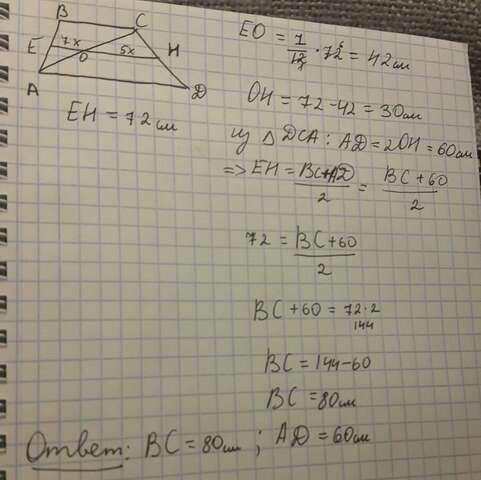 B C
E 7x O 5x H
A D
EH = 72 см
EO = 7/12 · 72 = 42 см
OH = 72 - 42 = 30 см
из △ DCA : AD = 2OH = 60 см
=> EH = BC+AD/2 = BC + 60/2
72 = BC + 60/2
BC + 60 = 72 · 2
144
BC = 144 - 60
BC = 80 см
Ответ: BC = 80 см ; AD = 60 см